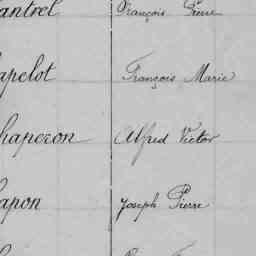 antrel François Pierre
apelot François Marie
haperon Alfred Victor
apon Joseph Pierre